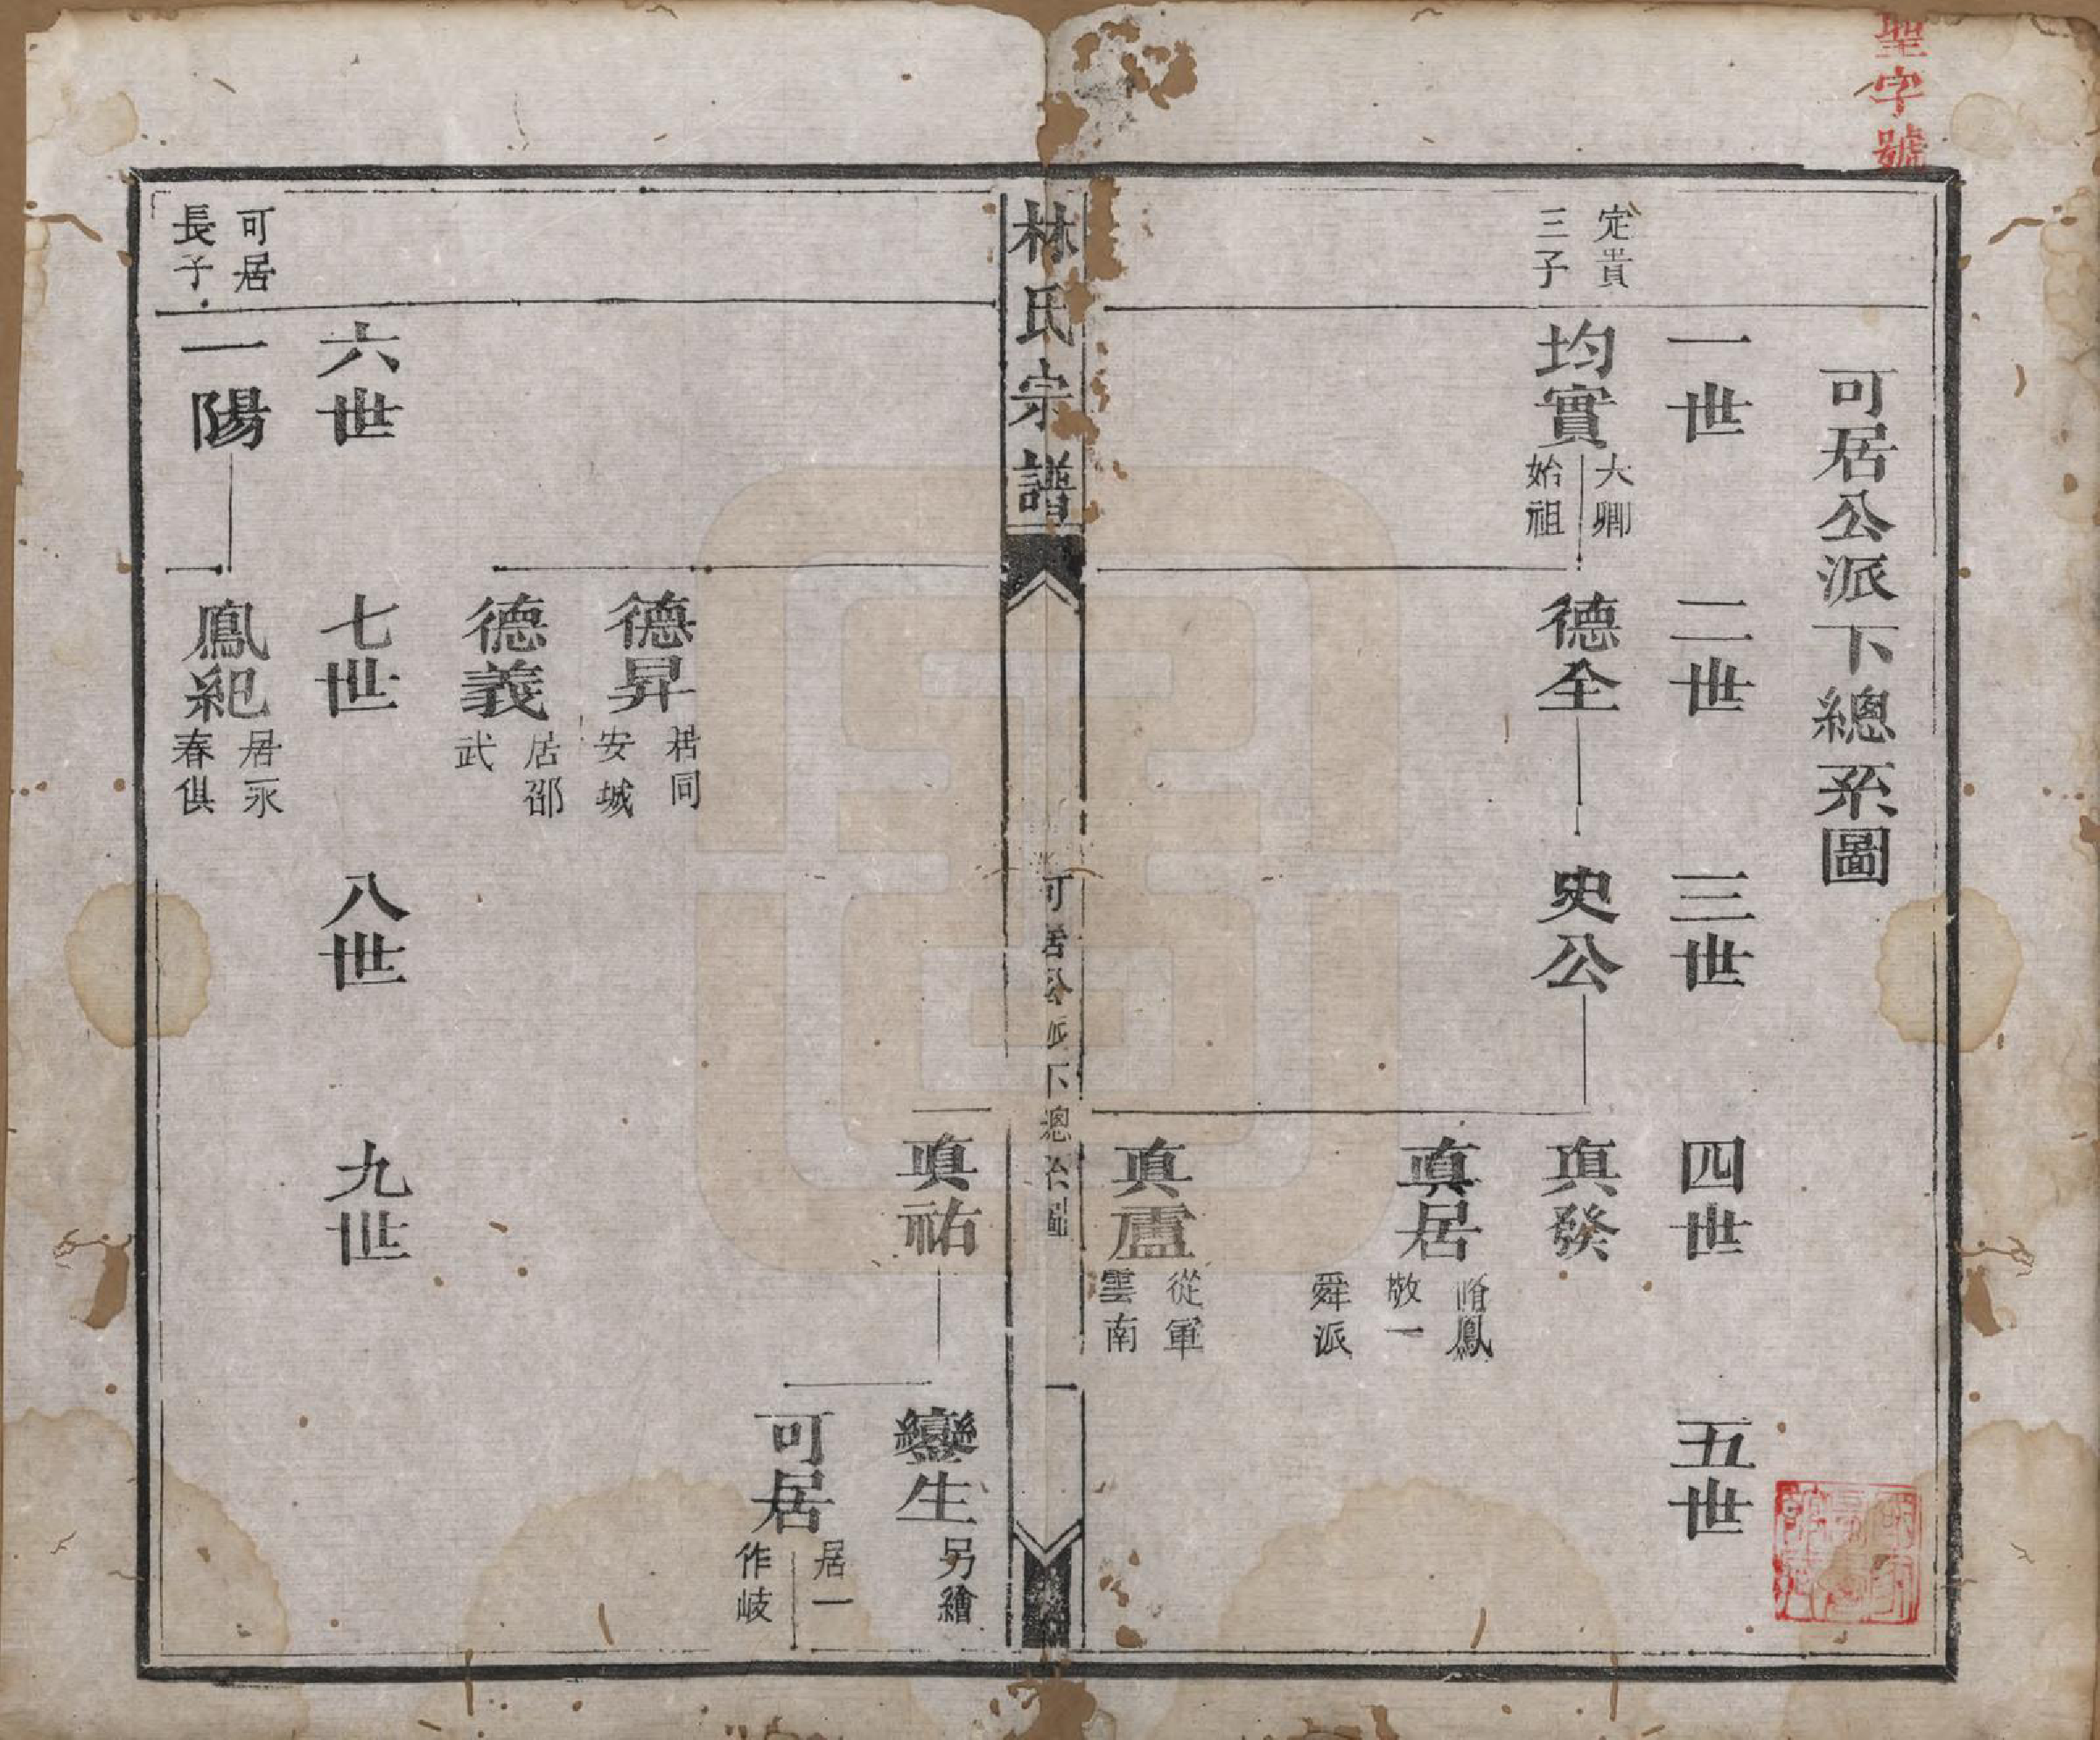 聖字號
可居公派下總系圖
一世
二世
三世
四世
五世
定貴
三子
均實
大卿
始祖
德全
史公
真發
真居
脩鳳
敬一
舜派
真盧
從軍
雲南
林氏宗譜
可居公派下總系圖
一
真祐
鸞生
另繪
可居
居一
作岐
德昇
居同
安城
德義
居邵
武
六世
七世
八世
九世
可居
長子
一陽
鳳紀
居永
春俱